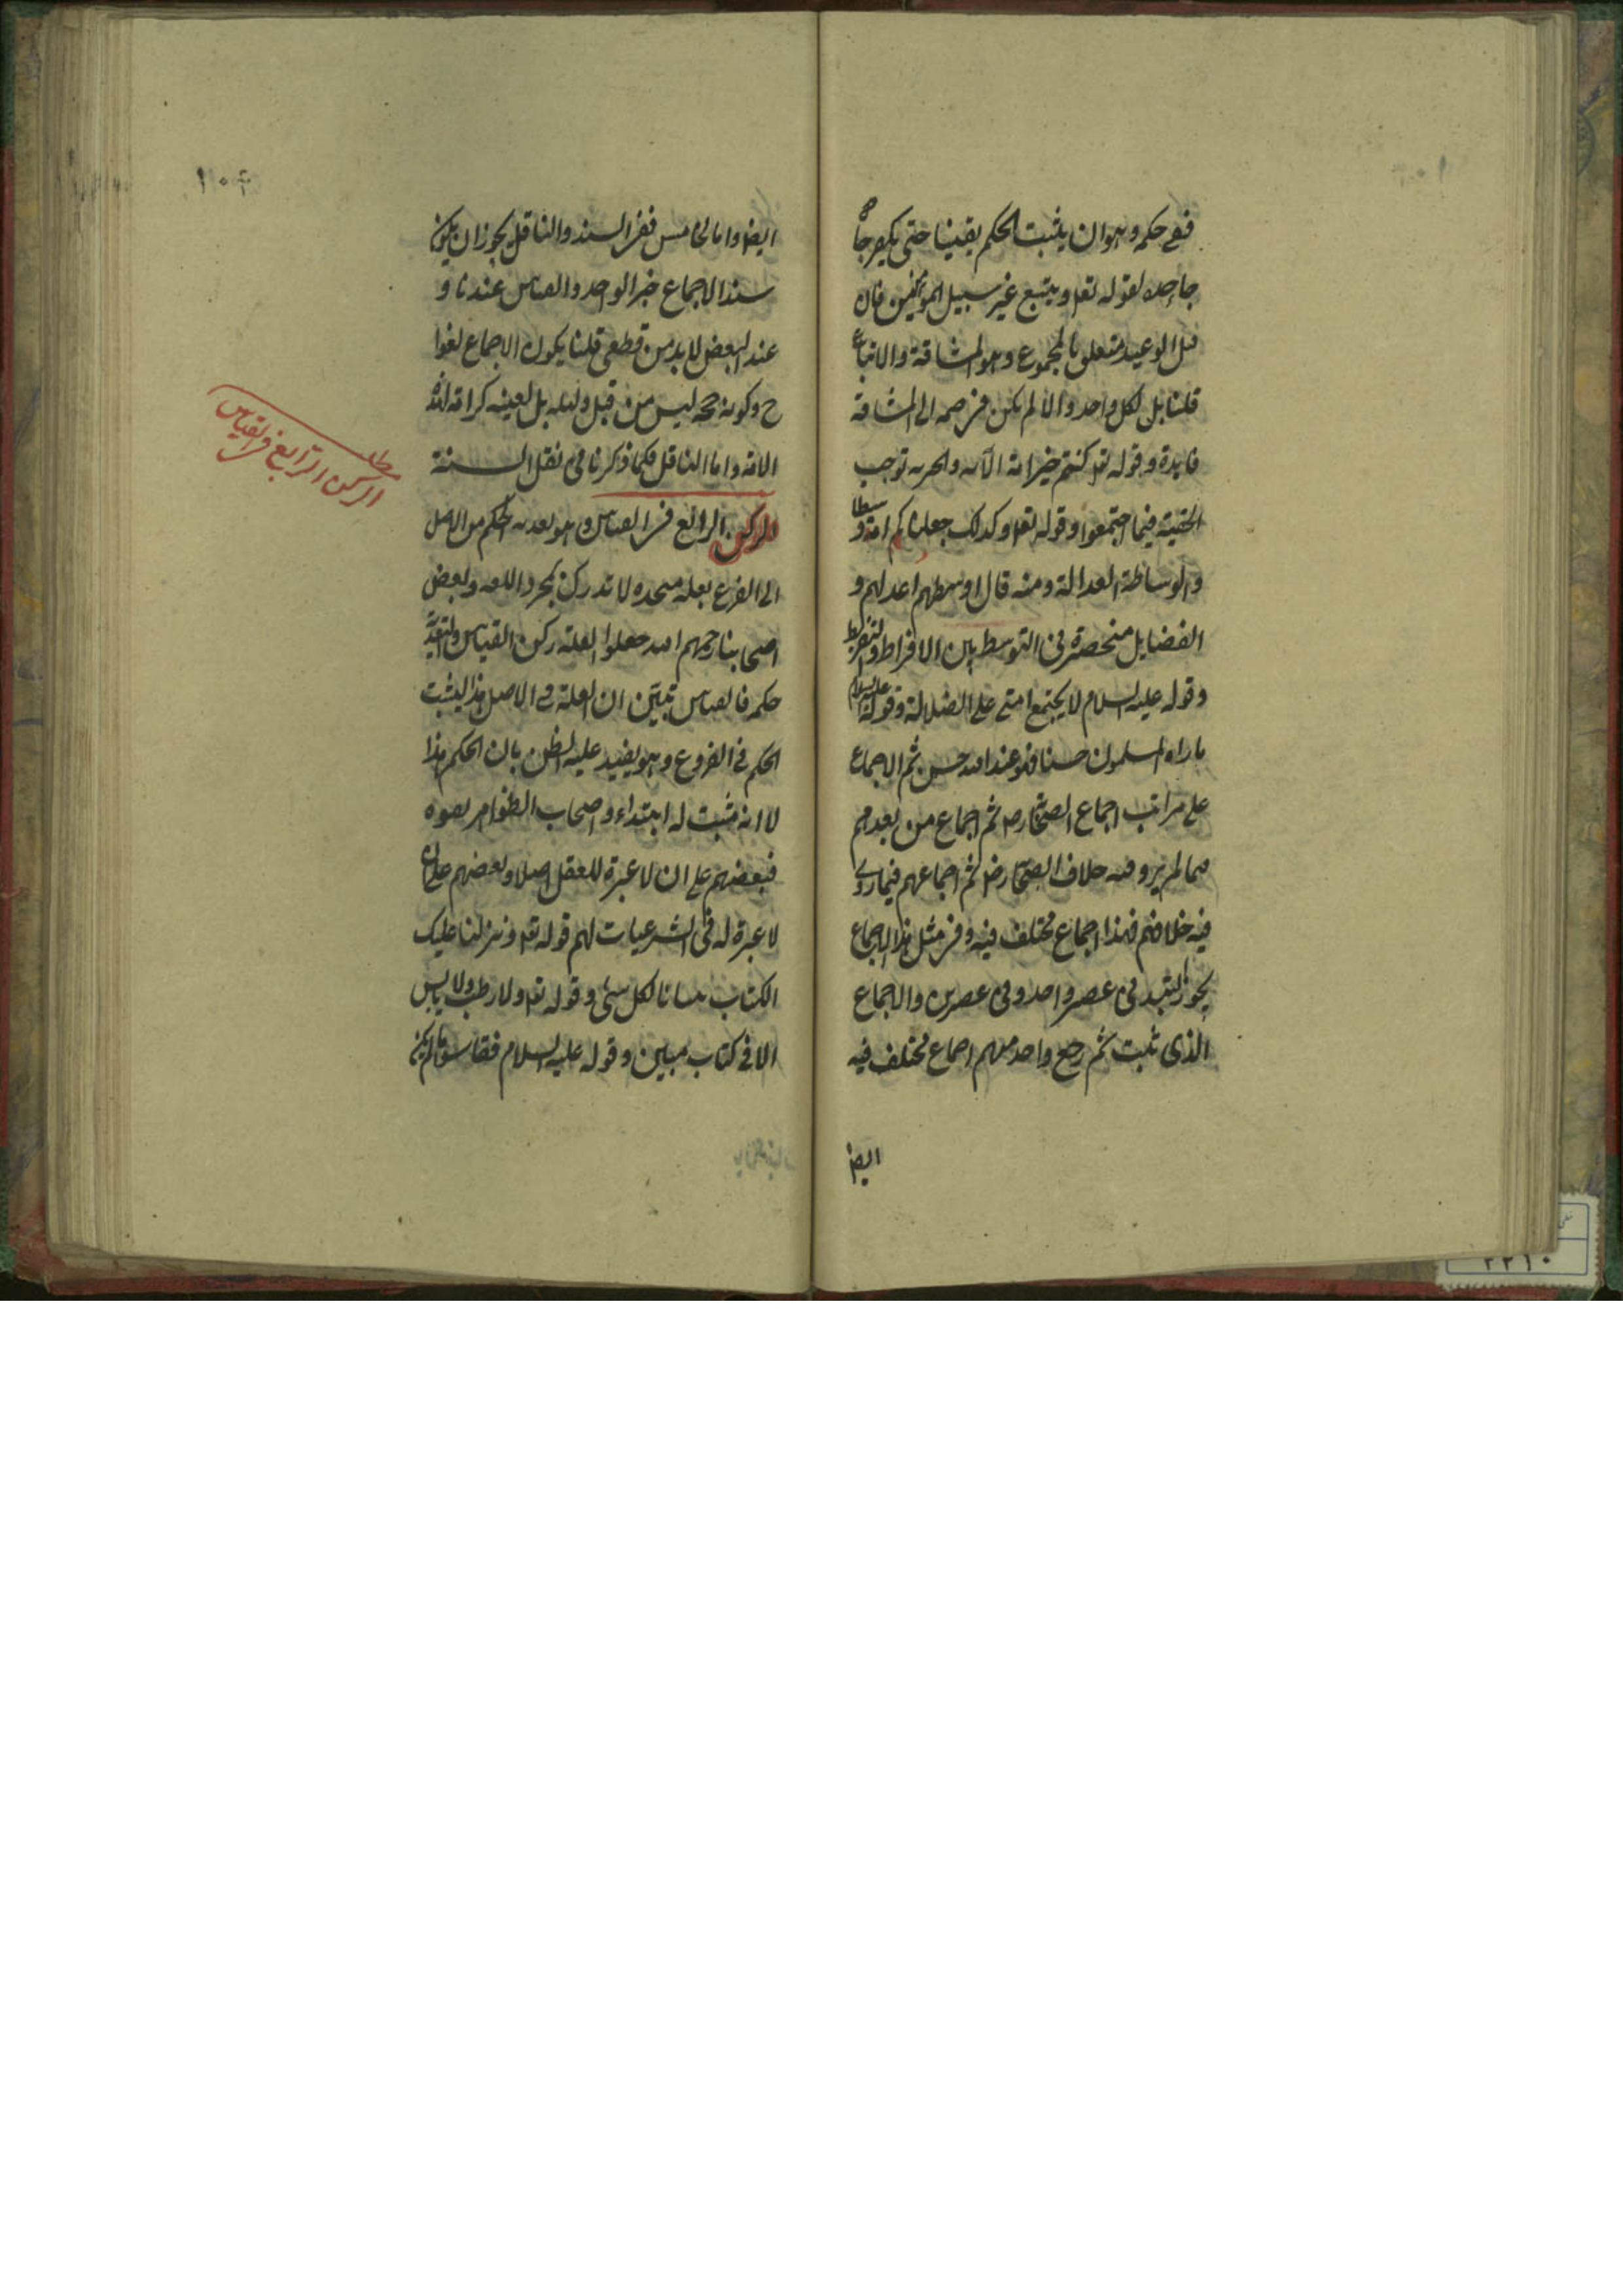 ففي حكمه وهو ان يثبت الحكم يقينا حتى يكفر جا
جاحده لقوله تعا ويتبع غير سبيل المؤمنين فان
قيل الوعيد متعلق بالمجموع وهو المشاقة والاتباع
قلنا بل لكل واحد والا لم يكن في ضمه الى المشاقة
فايدة وقوله تعا كنتم خير امة الآية والخيرية توجب
الحقية فيما اجتمعوا وقوله تعا وكذلك جعلناكم امة وسطا
والوساطة العدالة ومنه قال اوسطهم اعدلهم و
الفضايل منحصرة في التوسط بين الافراط والتفريط
وقوله عليه السلام لا يجتمع امتي على الضلالة وقوله عليه السلام
ما راه المسلمون حسنا فهو عند الله حسن ثم الاجماع
على مراتب اجماع الصحابة رض ثم اجماع من بعدهم
فيما لم يرو فيه خلاف الصحابة رض ثم اجماعهم فيما روى
فيه خلافهم فهذا اجماع مختلف فيه وفي مثل هذا الاجماع
يجوز التبديل في عصر واحد وفي عصرين والاجماع
الذي ثبت ثم رجع واحد منهم اجماع مختلف فيه
ايضا
١٠٤
ايضا واما الخامس ففي السند والناقل يجوز ان يكون
سند الاجماع خبر الواحد والقياس عندنا و
عند البعض لا بد من قطعي قلنا يكون الاجماع لغوا
ح وكونه حجة ليس من قبل دليله بل لعينه كرامة لهذه
الامة واما الناقل فكما ذكرنا في نقل السنة
الركن الرابع في القياس وهو تعدية الحكم من الاصل
الى الفرع بعلة متحدة لا تدرك بمجرد اللغة وبعض
اصحابنا رحمهم الله جعلوا العلة ركن القياس والتعدية
حكمه فالقياس تبيين ان العلة في الاصل هذا ليثبت
الحكم في الفروع وهو يفيد غلبة الظن بان الحكم هذا
لا انه مثبت له ابتداء واصحاب الظواهر نفوه
فبعضهم على ان لا عبرة للعقل اصلا وبعضهم على ان
لا عبرة له في الشرعيات لهم قوله تعا ونزلنا عليك
الكتاب تبيانا لكل شئ وقوله تعا ولا رطب ولا يابس
الا في كتاب مبين وقوله عليه السلام فقاسوا ما لم يكن
مطلب
الركن الرابع في القياس
٢٢١٠